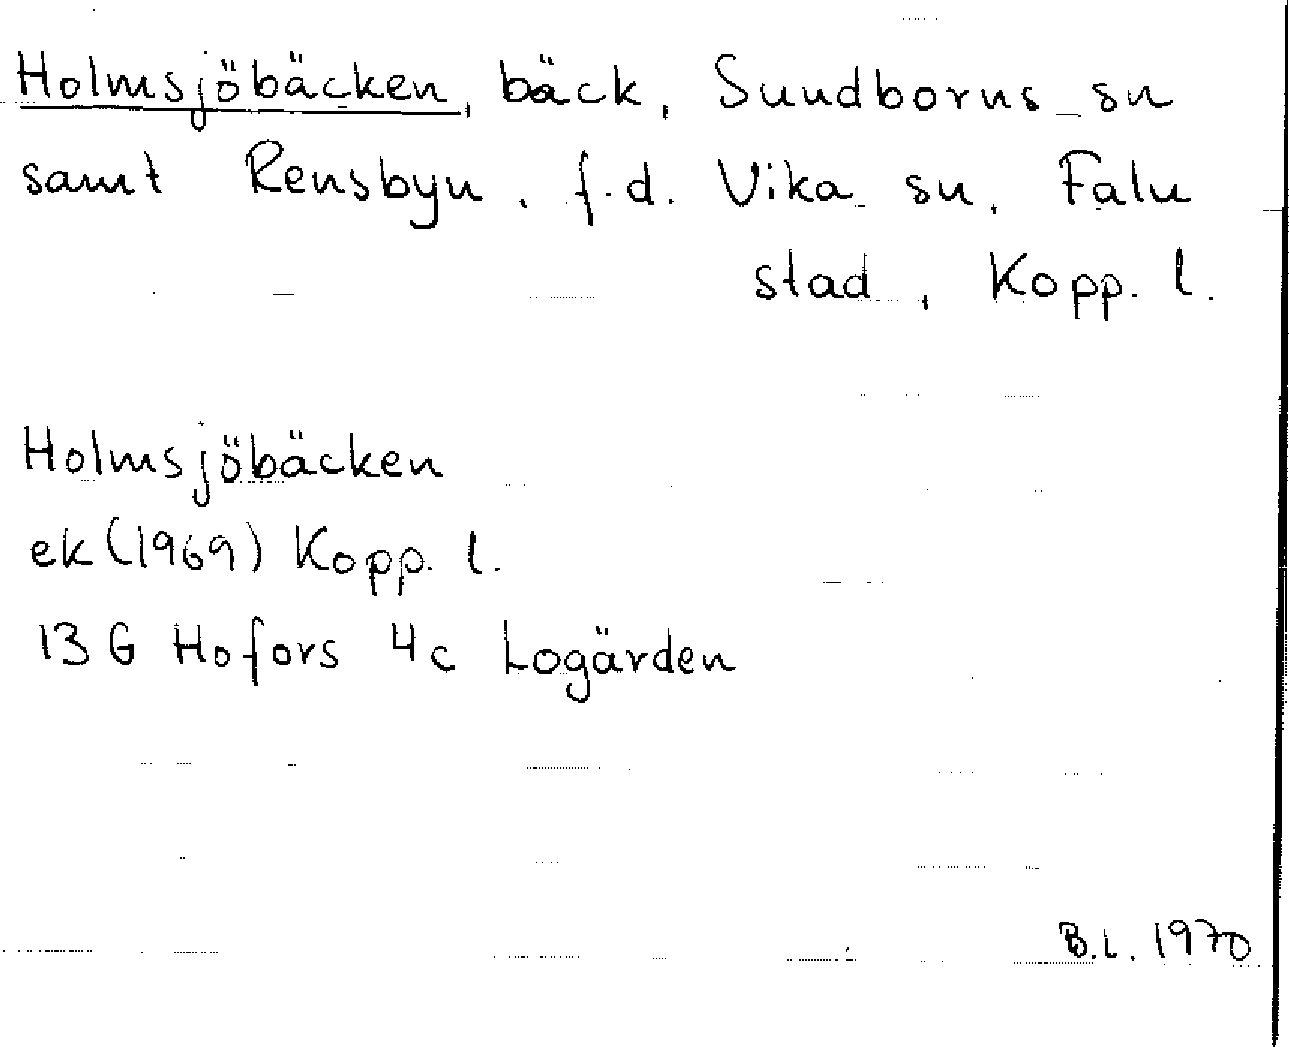 Holmsjöbäcken, bäck, Sundborns sn
samt Rensbyn, f.d. Vika sn, Falu
stad, Kopp. l.
Holmsjöbäcken
ek (1969) Kopp. l.
13 G Hofors 4c Logärden
B.L. 1970